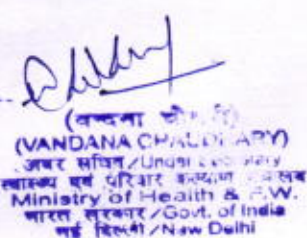 (वन्दना
(VANDANA CHAUDHARY)
अवर सचिव/Under Secretary
स्वास्थ्य एवं परिवार कल्याण
Ministry of Health & F.W.
भारत सरकार/Govt. of India
नई दिल्ली/New Delhi